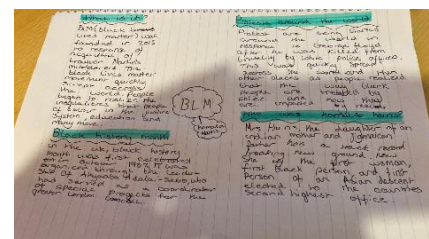 What is it?
BLM (black
lives matter) was
founded in 2013
in response of
of Trayvon Martin's
The
black lives matter
movement quickly
across
the world. People
begin to realise the
of black
in the justice
system, education and
many more.
Black history month
in the uk, black history
month was first celebrated
in October 1987. It was
organised through the leader-
ship of
had served as a coordinator
of special projects for the
greater London Council.
BLM
kamala
Harris
around the world
Protest are being
around the world in
response to George Floyd
after he was killed from
brutality by white police officer.
This word quickly spread
across the world and
other as people realised
that the way black
people were treated by
police and how they
are impacted by racism.
Who was kamala harris
Mrs Harris, the daughter of an
indian mother and Jamaican
father has a track record
breaking new ground, now
she is the first woman,
first black person and first
person of an Asian descent
elected to the countries
second highest office